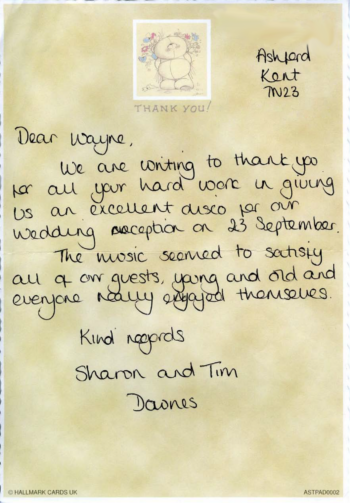 THANK YOU!
Ashford
Kent
TN23
Dear Wayne,
We are writing to thank you
for all your hard work in giving
us an excellent disco for our
wedding reception on 23 September.
The music seemed to satisfy
all of our guests, young and old and
everyone really enjoyed themselves.
Kind regards
Sharon and Tim
Downes
© HALLMARK CARDS UK
ASTPAD6002